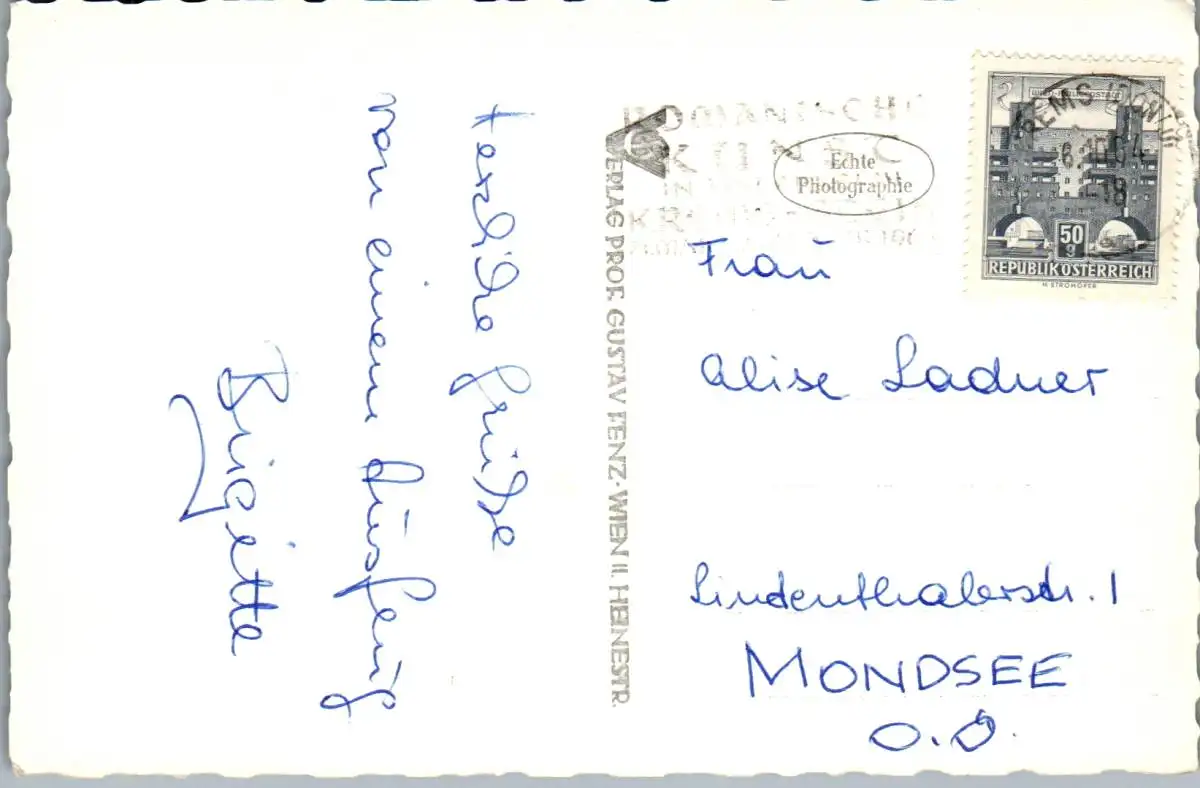 Herzliche Grüsse
von einem Ausflug
Brigitte
VERLAG PROF. GUSTAV FENZ·WIEN II. HEINESTR.
ROMANTISCHE
KUNST
IN
KREMS
Echte
Photographie
WIEN
KREMS
64
-18
50
g
REPUBLIK ÖSTERREICH
H. STROHOFER
Frau
Alise Ladner
Lindenthalerstr. 1
MONDSEE
O.Ö.